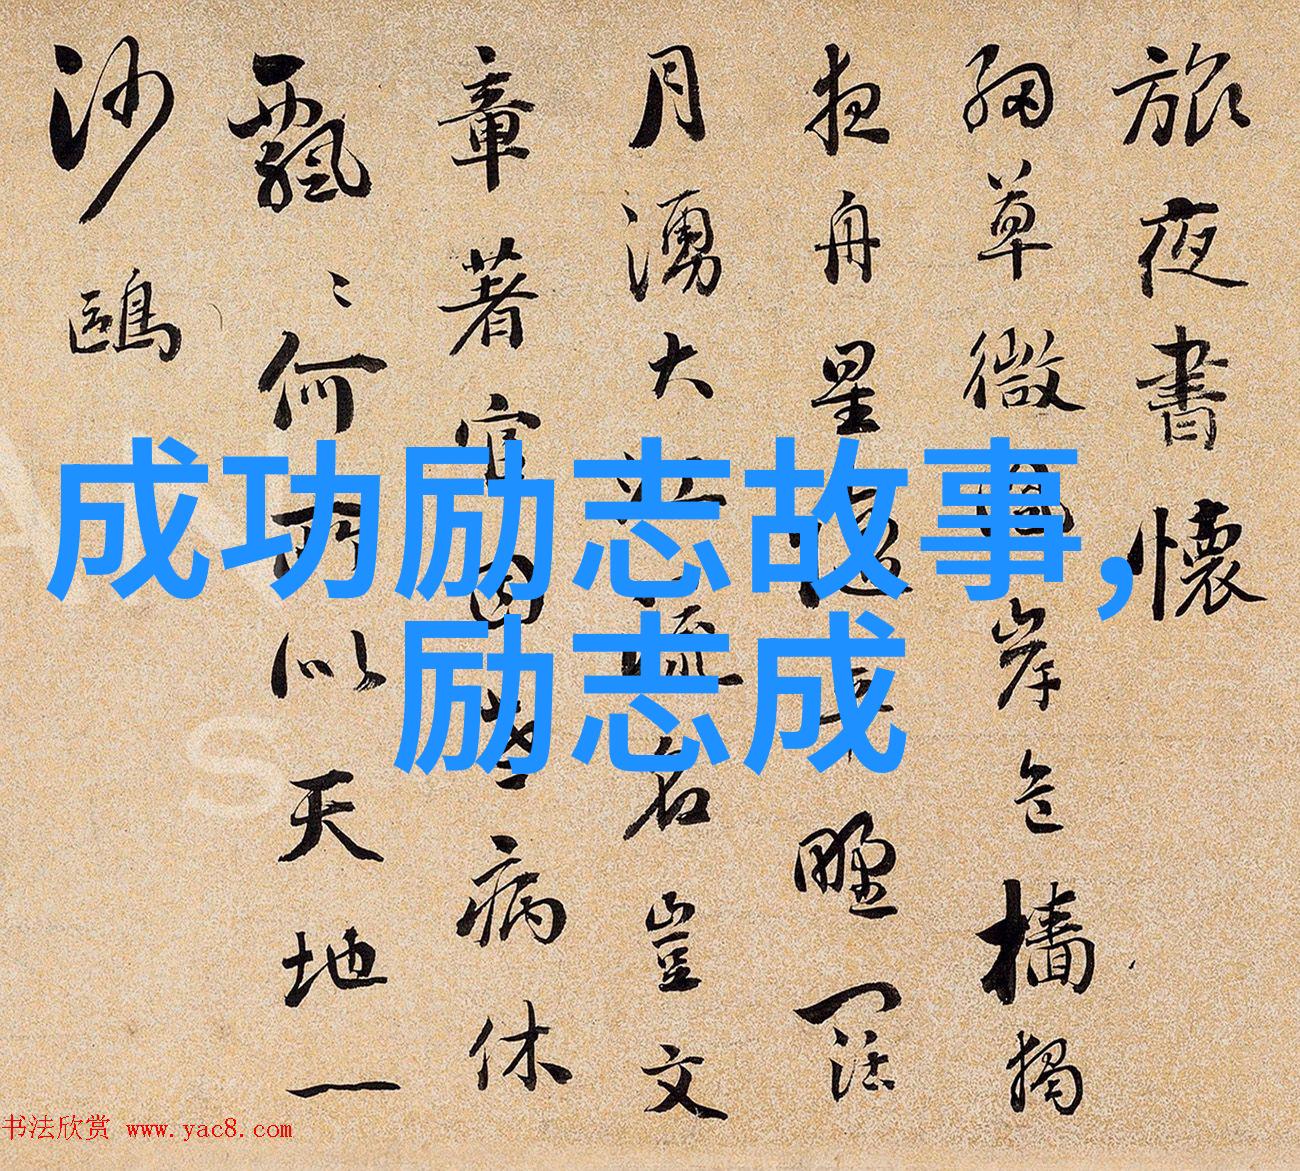 旅夜書懷
細草微風岸危檣獨
夜舟星隨平野闊
月湧大江流名豈文
章著官因老病休
飄〻何所似天地一
沙鷗
成功励志故事,
励志成
书法欣赏 www.yac8.com